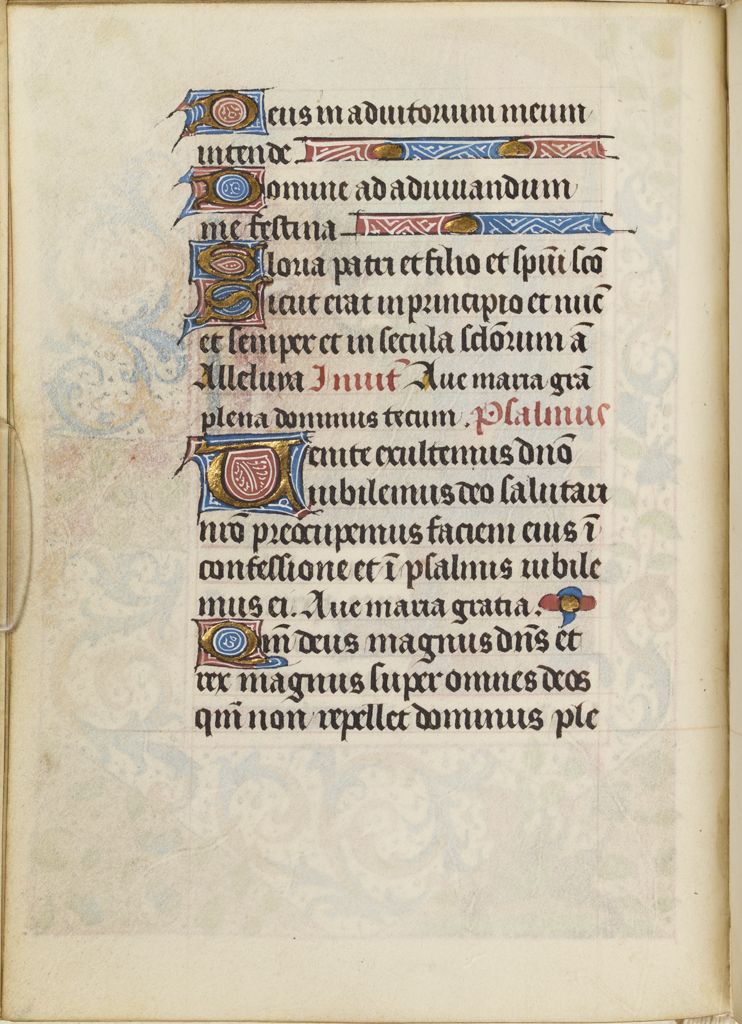 Deus in adiutorium meum
intende
Domine ad adiuuandum
me festina
Gloria patri et filio et spũi scõ
Sicut erat in principio et nũc
et semper et in secula sclõrum ã
Alleluya Inuit̃ Aue maria grã
plena dominus tecum. Psalmus
Uenite exultemus dnõ
iubilemus deo salutari
nrõ preoccupemus faciem eius ĩ
confessione et ĩ psalmis iubile
mus ei. Aue maria gratia.
Qm̃ deus magnus dñs et
rex magnus super omnes deos
qm̃ non repellet dominus ple